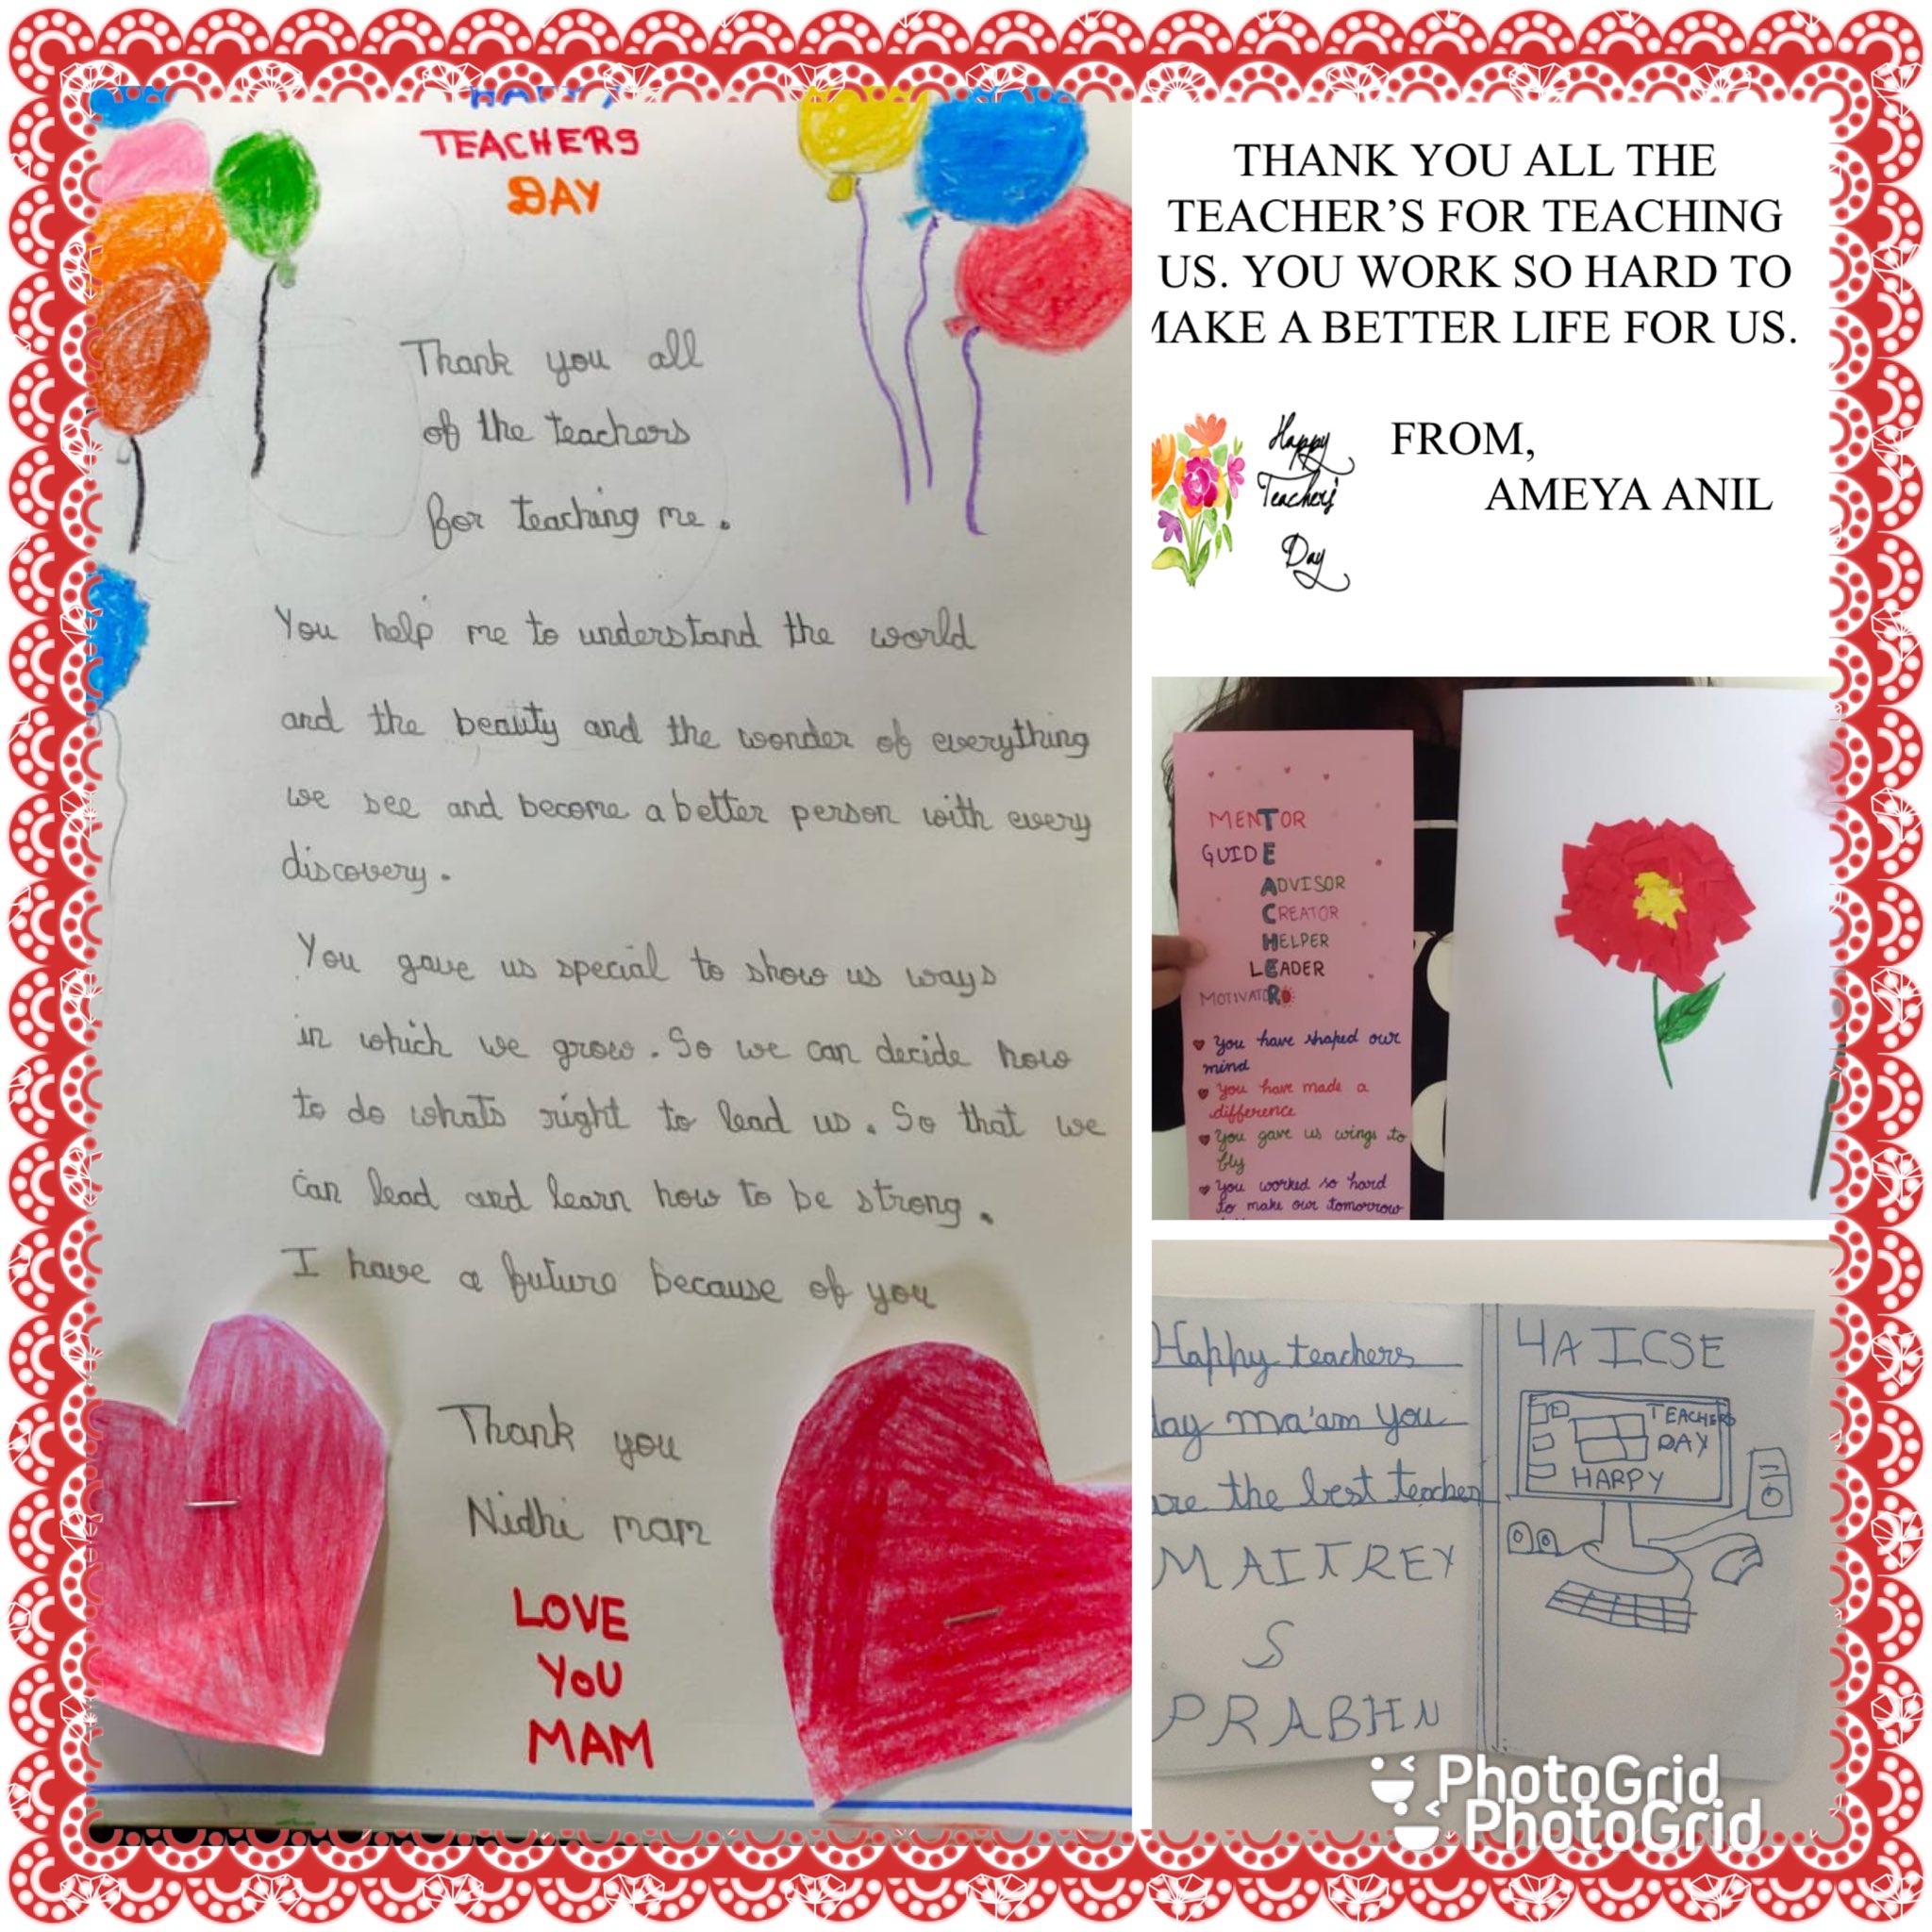 HAPPY
TEACHERS
DAY
Thank you all
of the teachers
for teaching me.
You help me to understand the world
and the beauty and the wonder of everything
we see and become a better person with every
discovery.
You gave us special to show us ways
in which we grow. So we can decide how
to do whats right to lead us. So that we
can lead and learn how to be strong.
I have a future because of you
Thank you
Nidhi mam
LOVE
YoU
MAM
THANK YOU ALL THE
TEACHER'S FOR TEACHING
US. YOU WORK SO HARD TO
MAKE A BETTER LIFE FOR US.
Happy
Teachers'
Day
FROM,
AMEYA ANIL
MENTOR
GUIDE
ADVISOR
CREATOR
HELPER
LEADER
MOTIVATOR
You have shaped our
mind
You have made a
difference
You gave us wings to
fly
You worked so hard
to make our tomorrow
Happy teachers
day ma'am you
are the best teacher
MAITREY
S
PRABHU
4A ICSE
TEACHERS
DAY
HAPPY
PhotoGrid
PhotoGrid